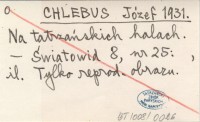 CHLEBUS Józef 1931.
Na tatrzańskich halach.
— Światowid 8, nr 25: ,
il. Tylko reprod. obrazu.